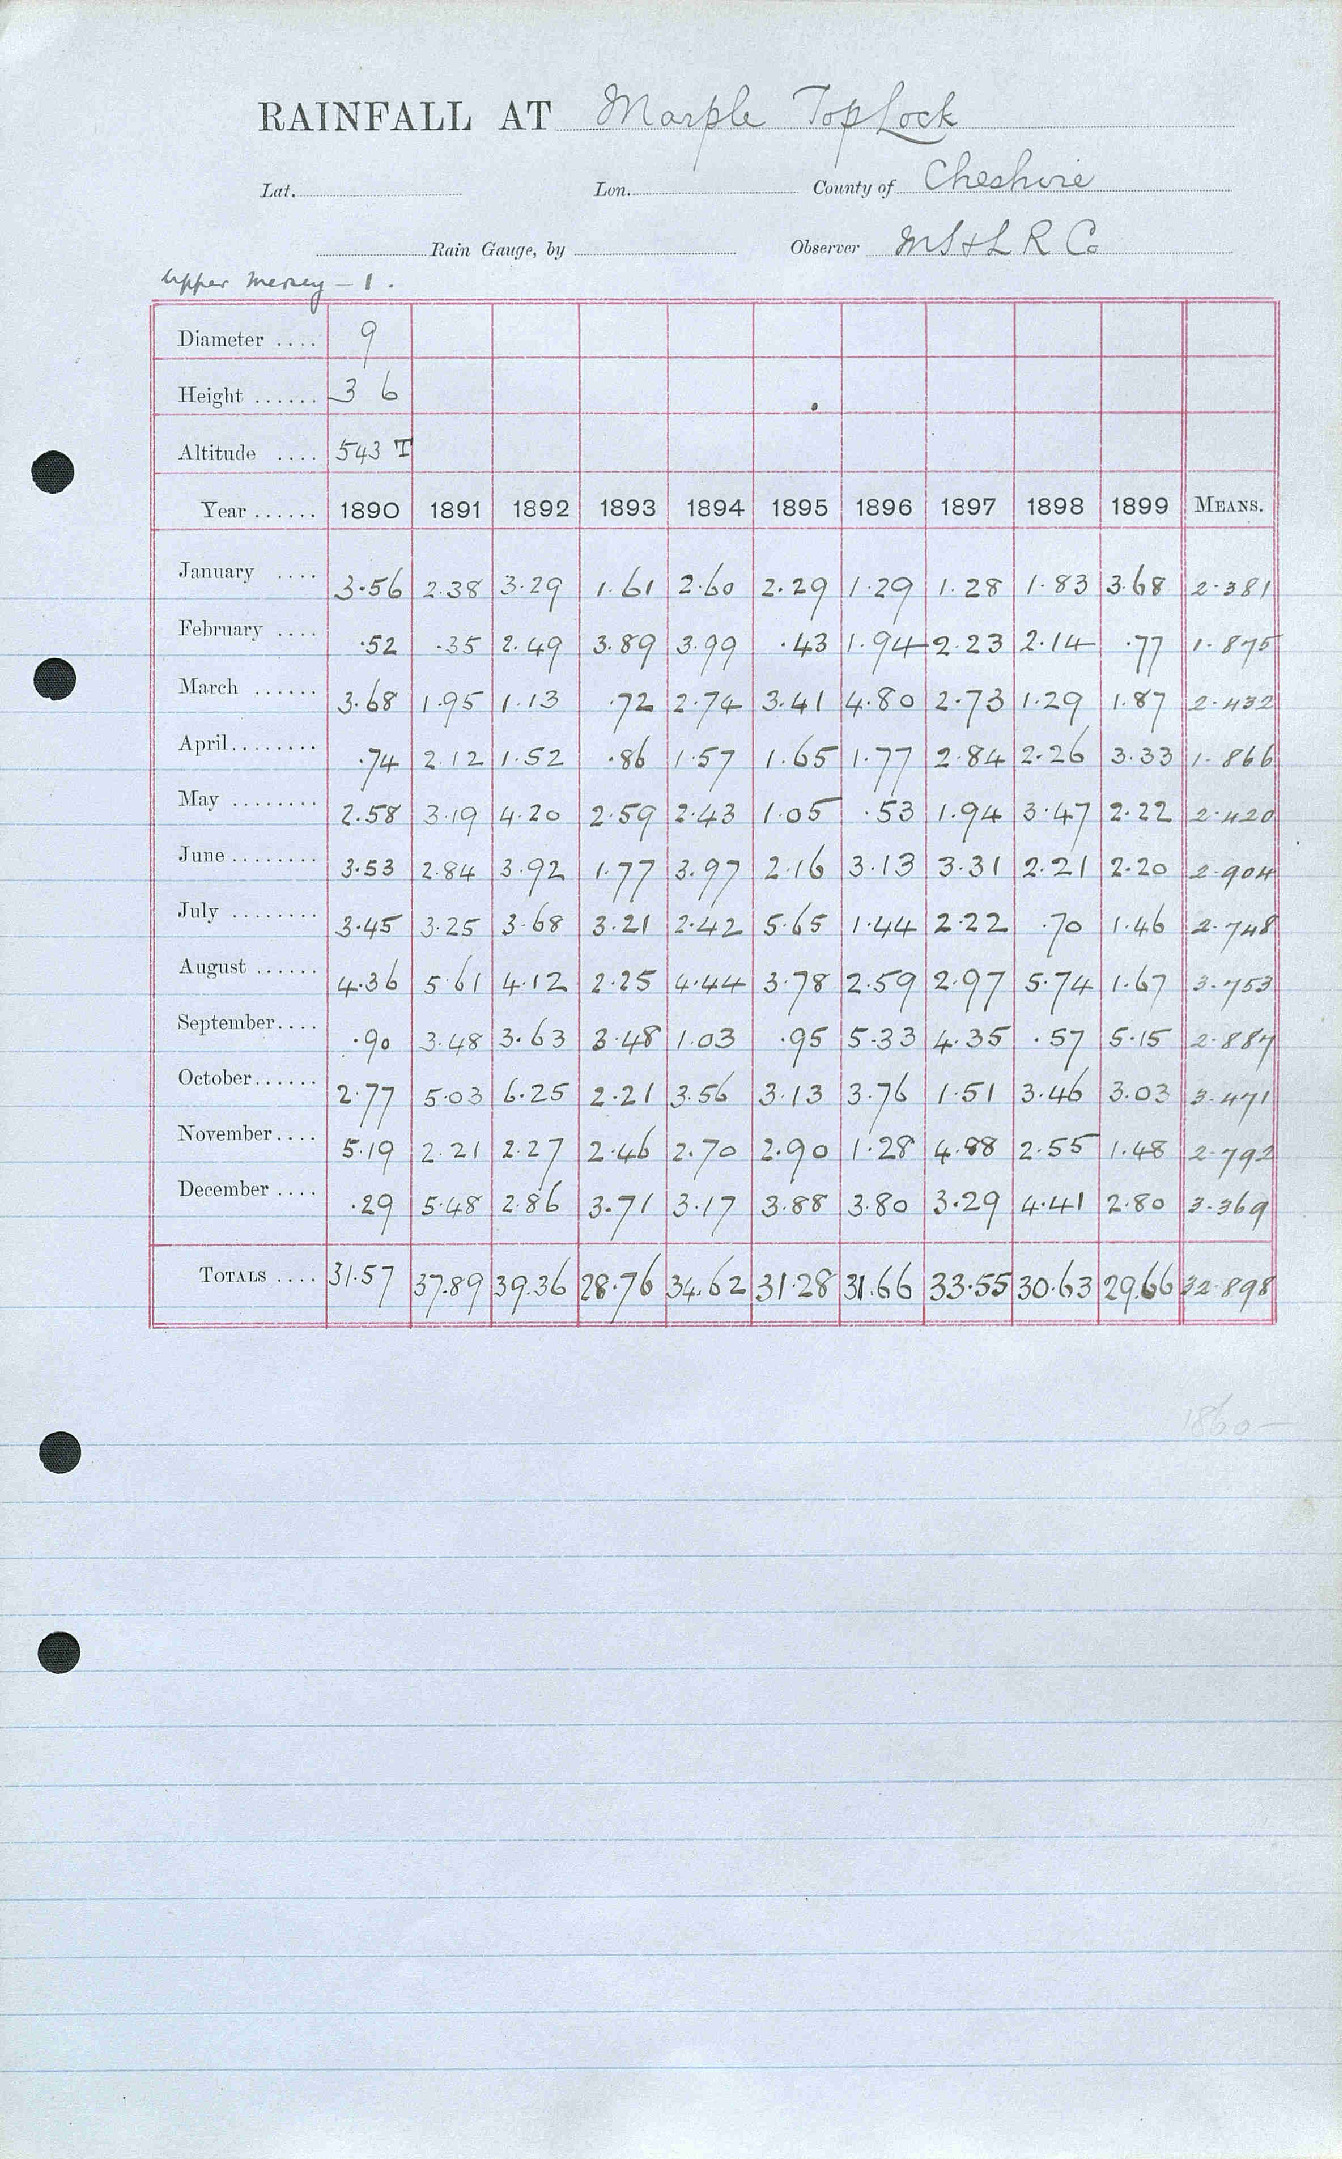 RAINFALL AT Marple Top Lock
Lat. Lon. County of Cheshire
Rain Gauge, by Observer MS&L R Co
Upper Mersey – 1.
Diameter .... 9
Height ...... 3 6
Altitude .... 543 T
Year ...... 1890 1891 1892 1893 1894 1895 1896 1897 1898 1899 MEANS.
January .... 3.56 2.38 3.29 1.61 2.60 2.29 1.29 1.28 1.83 3.68 2.381
February .... .52 .35 2.49 3.89 3.99 .43 1.94 2.23 2.14 .77 1.875
March ...... 3.68 1.95 1.13 .72 2.74 3.41 4.80 2.73 1.29 1.87 2.432
April........ .74 2.12 1.52 .86 1.57 1.65 1.77 2.84 2.26 3.33 1.866
May ........ 2.58 3.19 4.20 2.59 2.43 1.05 .53 1.94 3.47 2.22 2.420
June ........ 3.53 2.84 3.92 1.77 3.97 2.16 3.13 3.31 2.21 2.20 2.904
July ........ 3.45 3.25 3.68 3.21 2.42 5.65 1.44 2.22 .70 1.46 2.748
August ...... 4.36 5.61 4.12 2.25 4.44 3.78 2.59 2.97 5.74 1.67 3.753
September.... .90 3.48 3.63 3.48 1.03 .95 5.33 4.35 .57 5.15 2.887
October...... 2.77 5.03 6.25 2.21 3.56 3.13 3.76 1.51 3.46 3.03 3.471
November.... 5.19 2.21 2.27 2.46 2.70 2.90 1.28 4.88 2.55 1.48 2.792
December .... .29 5.48 2.86 3.71 3.17 3.88 3.80 3.29 4.41 2.80 3.369
TOTALS .... 31.57 37.89 39.36 28.76 34.62 31.28 31.66 33.55 30.63 29.66 32.898
1860–